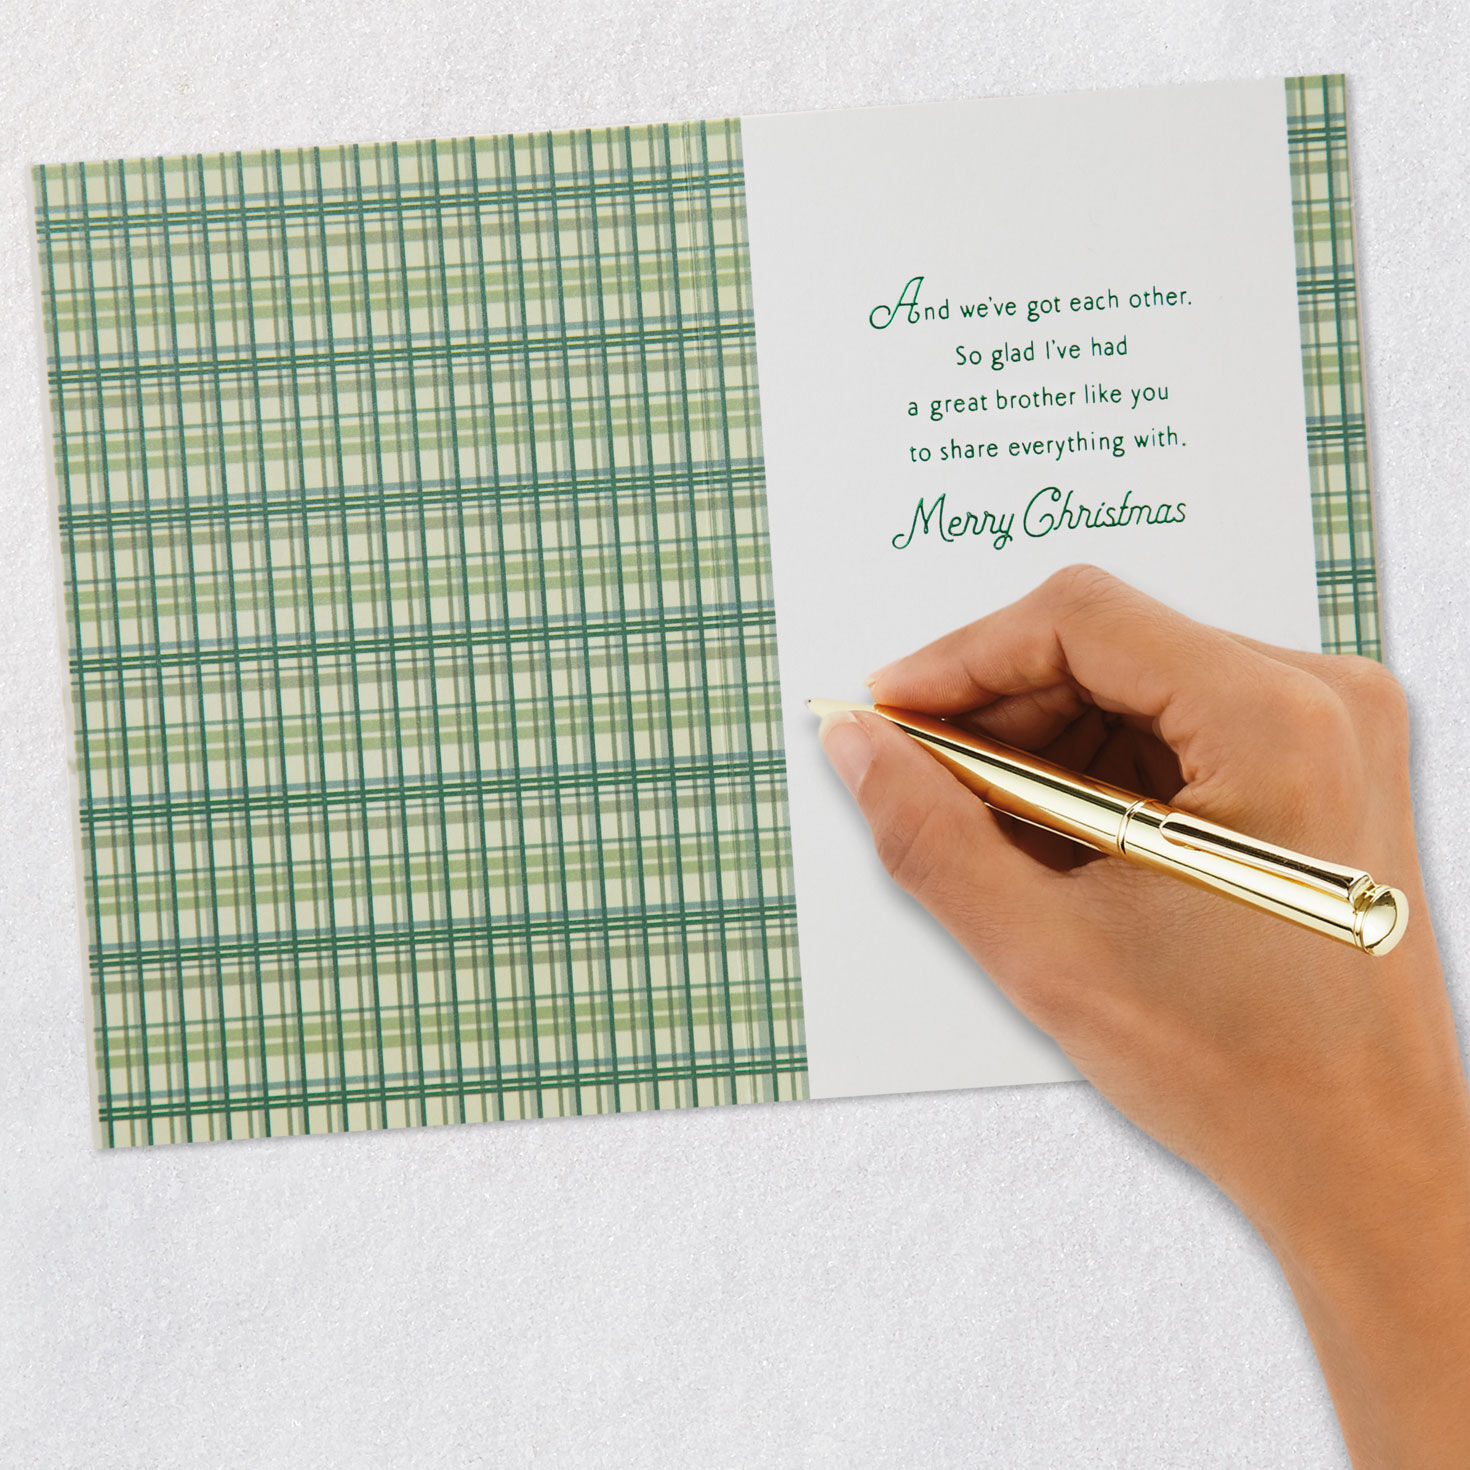 And we've got each other.
So glad I've had
a great brother like you
to share everything with.
Merry Christmas